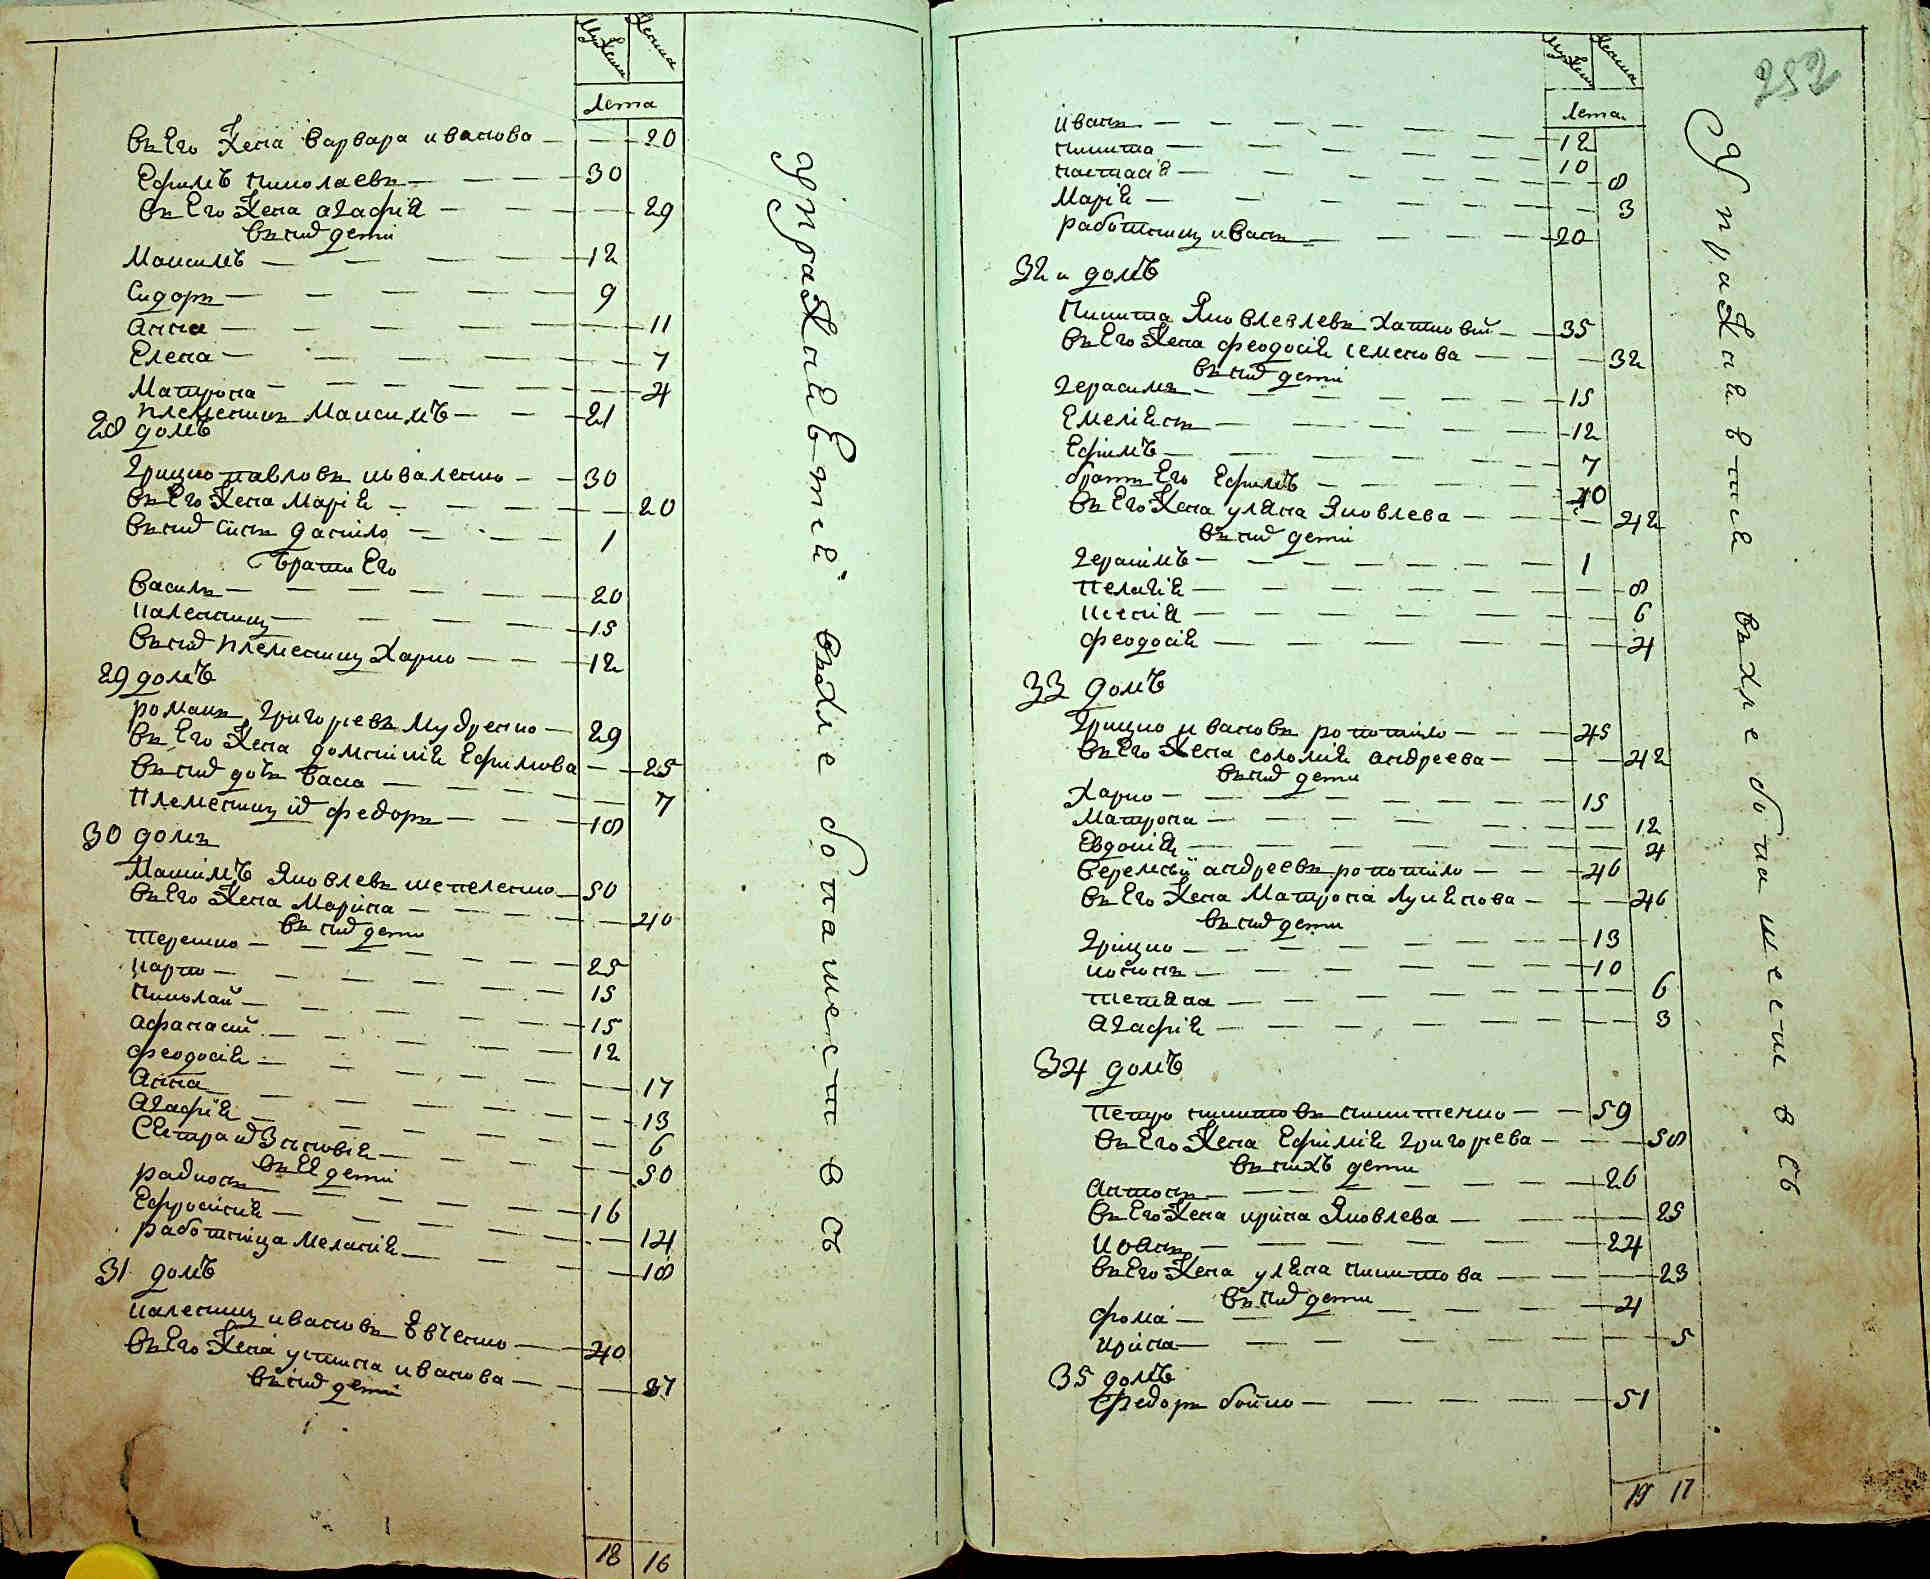 Мужеска Женска
Лета
въ Его Жена варвара иванова — 20
Ефимъ николаевъ — 30
въ Его Жена агафія — 29
въ нид дети
Максимъ — 12
Сидоръ — 9
Анна — 11
Елена — 7
Матрона — 4
племенник Максимъ — 21
28 домъ
Грицко павловъ коваленко — 30
въ Его Жена Марія — 20
въ нид синъ данило — 1
брати Его
василь — 20
калениик — 15
въ нид племенник Харко — 12
29 домъ
романъ Григорьевъ Мудренко — 29
въ Его Жена домникія Ефимова — 25
въ нид дочь васса — 7
племенник ид федоръ — 18
30 домъ
Максімъ Яковлевъ шепеленко — 50
въ Его Жена Марина — 40
въ нид дети
терешко — 25
карпо — 15
николай — 15
афанасий — 12
феодосія — 17
Анна — 13
Агафія — 6
Сестра ид Зиновія — 50
въ Ея дети
радионъ — 16
Ефросінія — 14
работніца меланія — 18
31 домъ
каленик ивановъ Евченко — 40
въ Его Жена устина иванова — 37
въ нид дети
18 16
упражняется в хлебопашестве
252
Мужеска Женска
Лета
иванъ — 12
никита — 10
настасія — 8
Марія — 3
работник иванъ — 20
32 и домъ
Никита Яковлевлевъ Хатковий — 35
въ Его Жена феодосія семенова — 32
въ нид дети
Герасимъ — 15
Емеліянъ — 12
Ефимъ — 7
братъ Его Ефимъ — 40
въ Его Жена уляна Яковлева — 42
въ нид дети
Герасімъ — 1
пелагія — 8
ксенія — 6
феодосія — 4
33 домъ
Грицко ивановъ ропотило — 45
въ Его Жена соломія андреева — 42
въ нид дети
Харко — 15
Матрона — 12
Евдокія — 4
веремѣй андреевъ ропотіло — 46
въ Его Жена Матрона Лукянова — 46
въ нид дети
Гріцко — 13
кононъ — 10
тетяна — 6
Агафія — 3
34 домъ
петро никитовъ никитенко — 59
въ Его Жена Ефімія григорева — 58
въ нихъ дети
Антонъ — 26
въ Его Жена ирина Яковлева — 25
Иванъ — 24
въ Его Жена уляна никитова — 23
въ нид дети
фома — 4
ирина — 5
35 домъ
Федоръ бойко — 51
19 17
упражняется в хлебопашестве